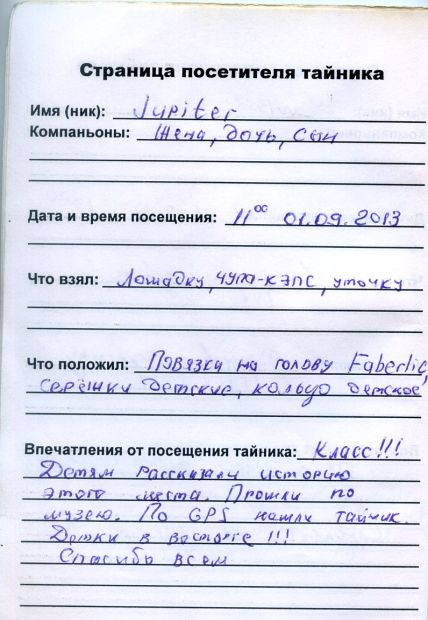 Страница посетителя тайника
Имя (ник): Jupiter
Компаньоны: Жена, дочь, сын
Дата и время посещения: 11⁰⁰ 01.09.2013
Что взял: Лошадку, чупа-кэпс, уточку
Что положил: Повязку на голову Faberlic,
серёжки детские, кольцо детское
Впечатления от посещения тайника: Класс!!!
Детям рассказали историю
этого места. Прошли по
музею. По GPS нашли тайник.
Детки в восторге !!!
Спасибо всем